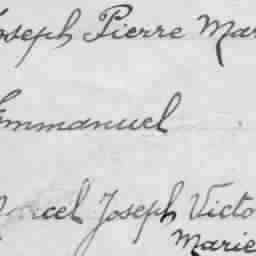 Joseph Pierre Mar
Emmanuel
Marcel Joseph Victo
Marie